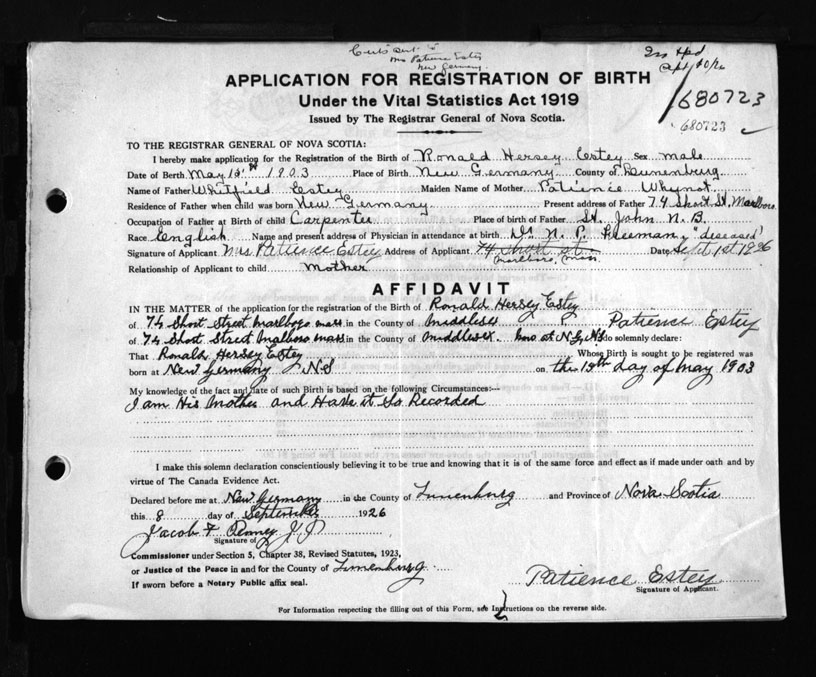 Cert sent to
Mrs Patience Estey
New Germany.
APPLICATION FOR REGISTRATION OF BIRTH
Under the Vital Statistics Act 1919
Issued by The Registrar General of Nova Scotia.
680723
680723
TO THE REGISTRAR GENERAL OF NOVA SCOTIA:
I hereby make application for the Registration of the Birth of Ronald Hersey Estey Sex male
Date of Birth May 1903 Place of Birth New Germany County of Lunenburg
Name of Father Whitfield Estey Maiden Name of Mother Patience Whynot
Residence of Father when child was born New Germany Present address of Father 74 Short St. Marlboro
Occupation of Father at Birth of child Carpenter Place of birth of Father St. John N.B.
Race English Name and present address of Physician in attendance at birth Dr. N. P. Freeman, "deseased"
Signature of Applicant Mrs Patience Estey Address of Applicant 74 Short st. Marlboro, Mass. Date Sept 1st 1926
Relationship of Applicant to child mother
AFFIDAVIT
IN THE MATTER of the application for the registration of the Birth of Ronald Hersey Estey
of 74 Short Street Marlboro mass in the County of Middlesex I, Patience Estey
of 74 Short Street Malboro mass in the County of Middlesex. do solemnly declare:
That Ronald Hersey Estey Whose Birth is sought to be registered was
born at New Germany N.S on the 19th day of May 1903
My knowledge of the fact and date of such Birth is based on the following Circumstances:—
I am His Mother and Have it So Recorded
I make this solemn declaration conscientiously believing it to be true and knowing that it is of the same force and effect as if made under oath and by
virtue of The Canada Evidence Act.
Declared before me at New Germany in the County of Lunenburg and Province of Nova Scotia
this 8 day of September 1926
Jacob F Penney J.P
Signature of
Commissioner under Section 5, Chapter 38, Revised Statutes, 1923,
or Justice of the Peace in and for the County of Lunenburg
If sworn before a Notary Public affix seal.
Patience Estey
Signature of Applicant.
For Information respecting the filling out of this Form, see Instructions on the reverse side.